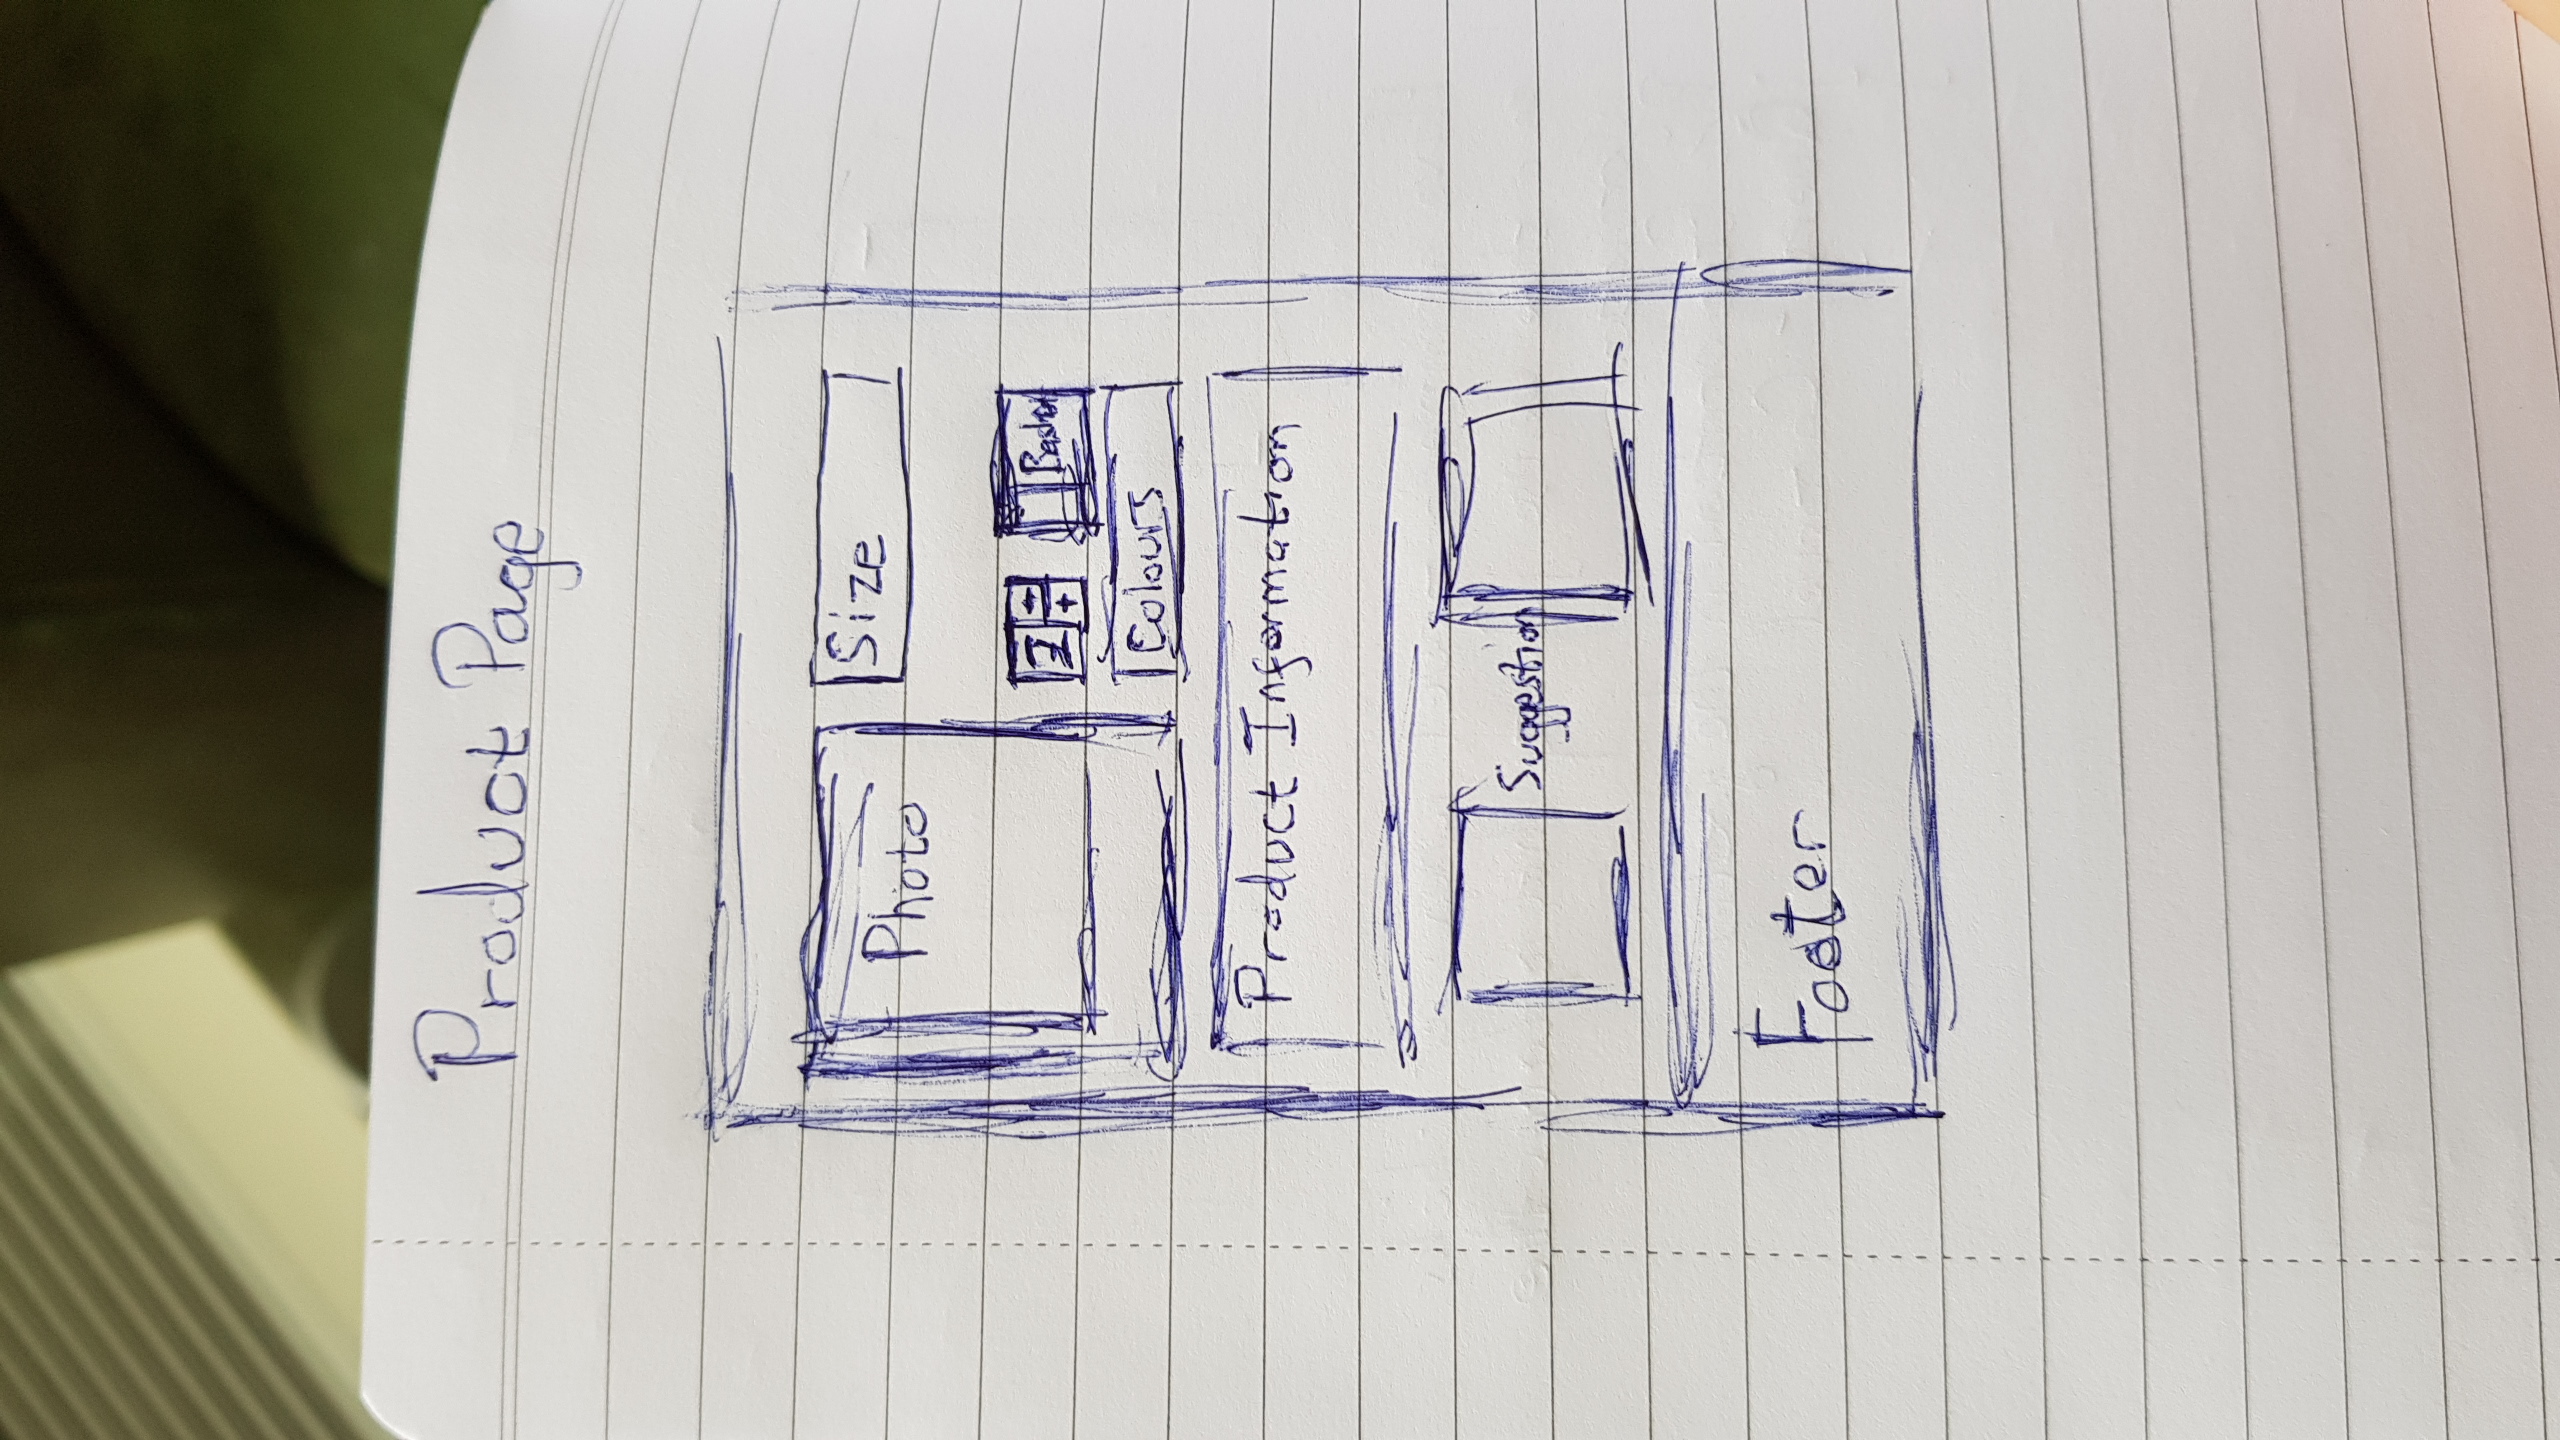 Product Page
Photo
Size
-
+
Colours
Product Information
Suggestion
Footer